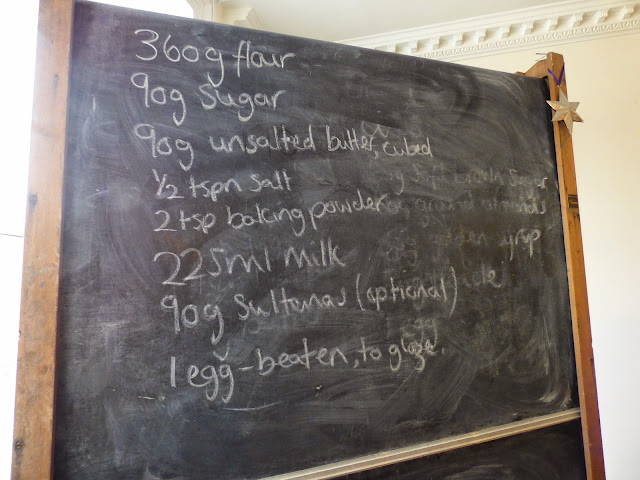 360g flour
90g sugar
90g unsalted butter, cubed
½ tspn salt
2 tsp baking powder
225ml milk
90g sultanas (optional)
1 egg - beaten, to glaze.
soft brown sugar
ground almonds
syrup